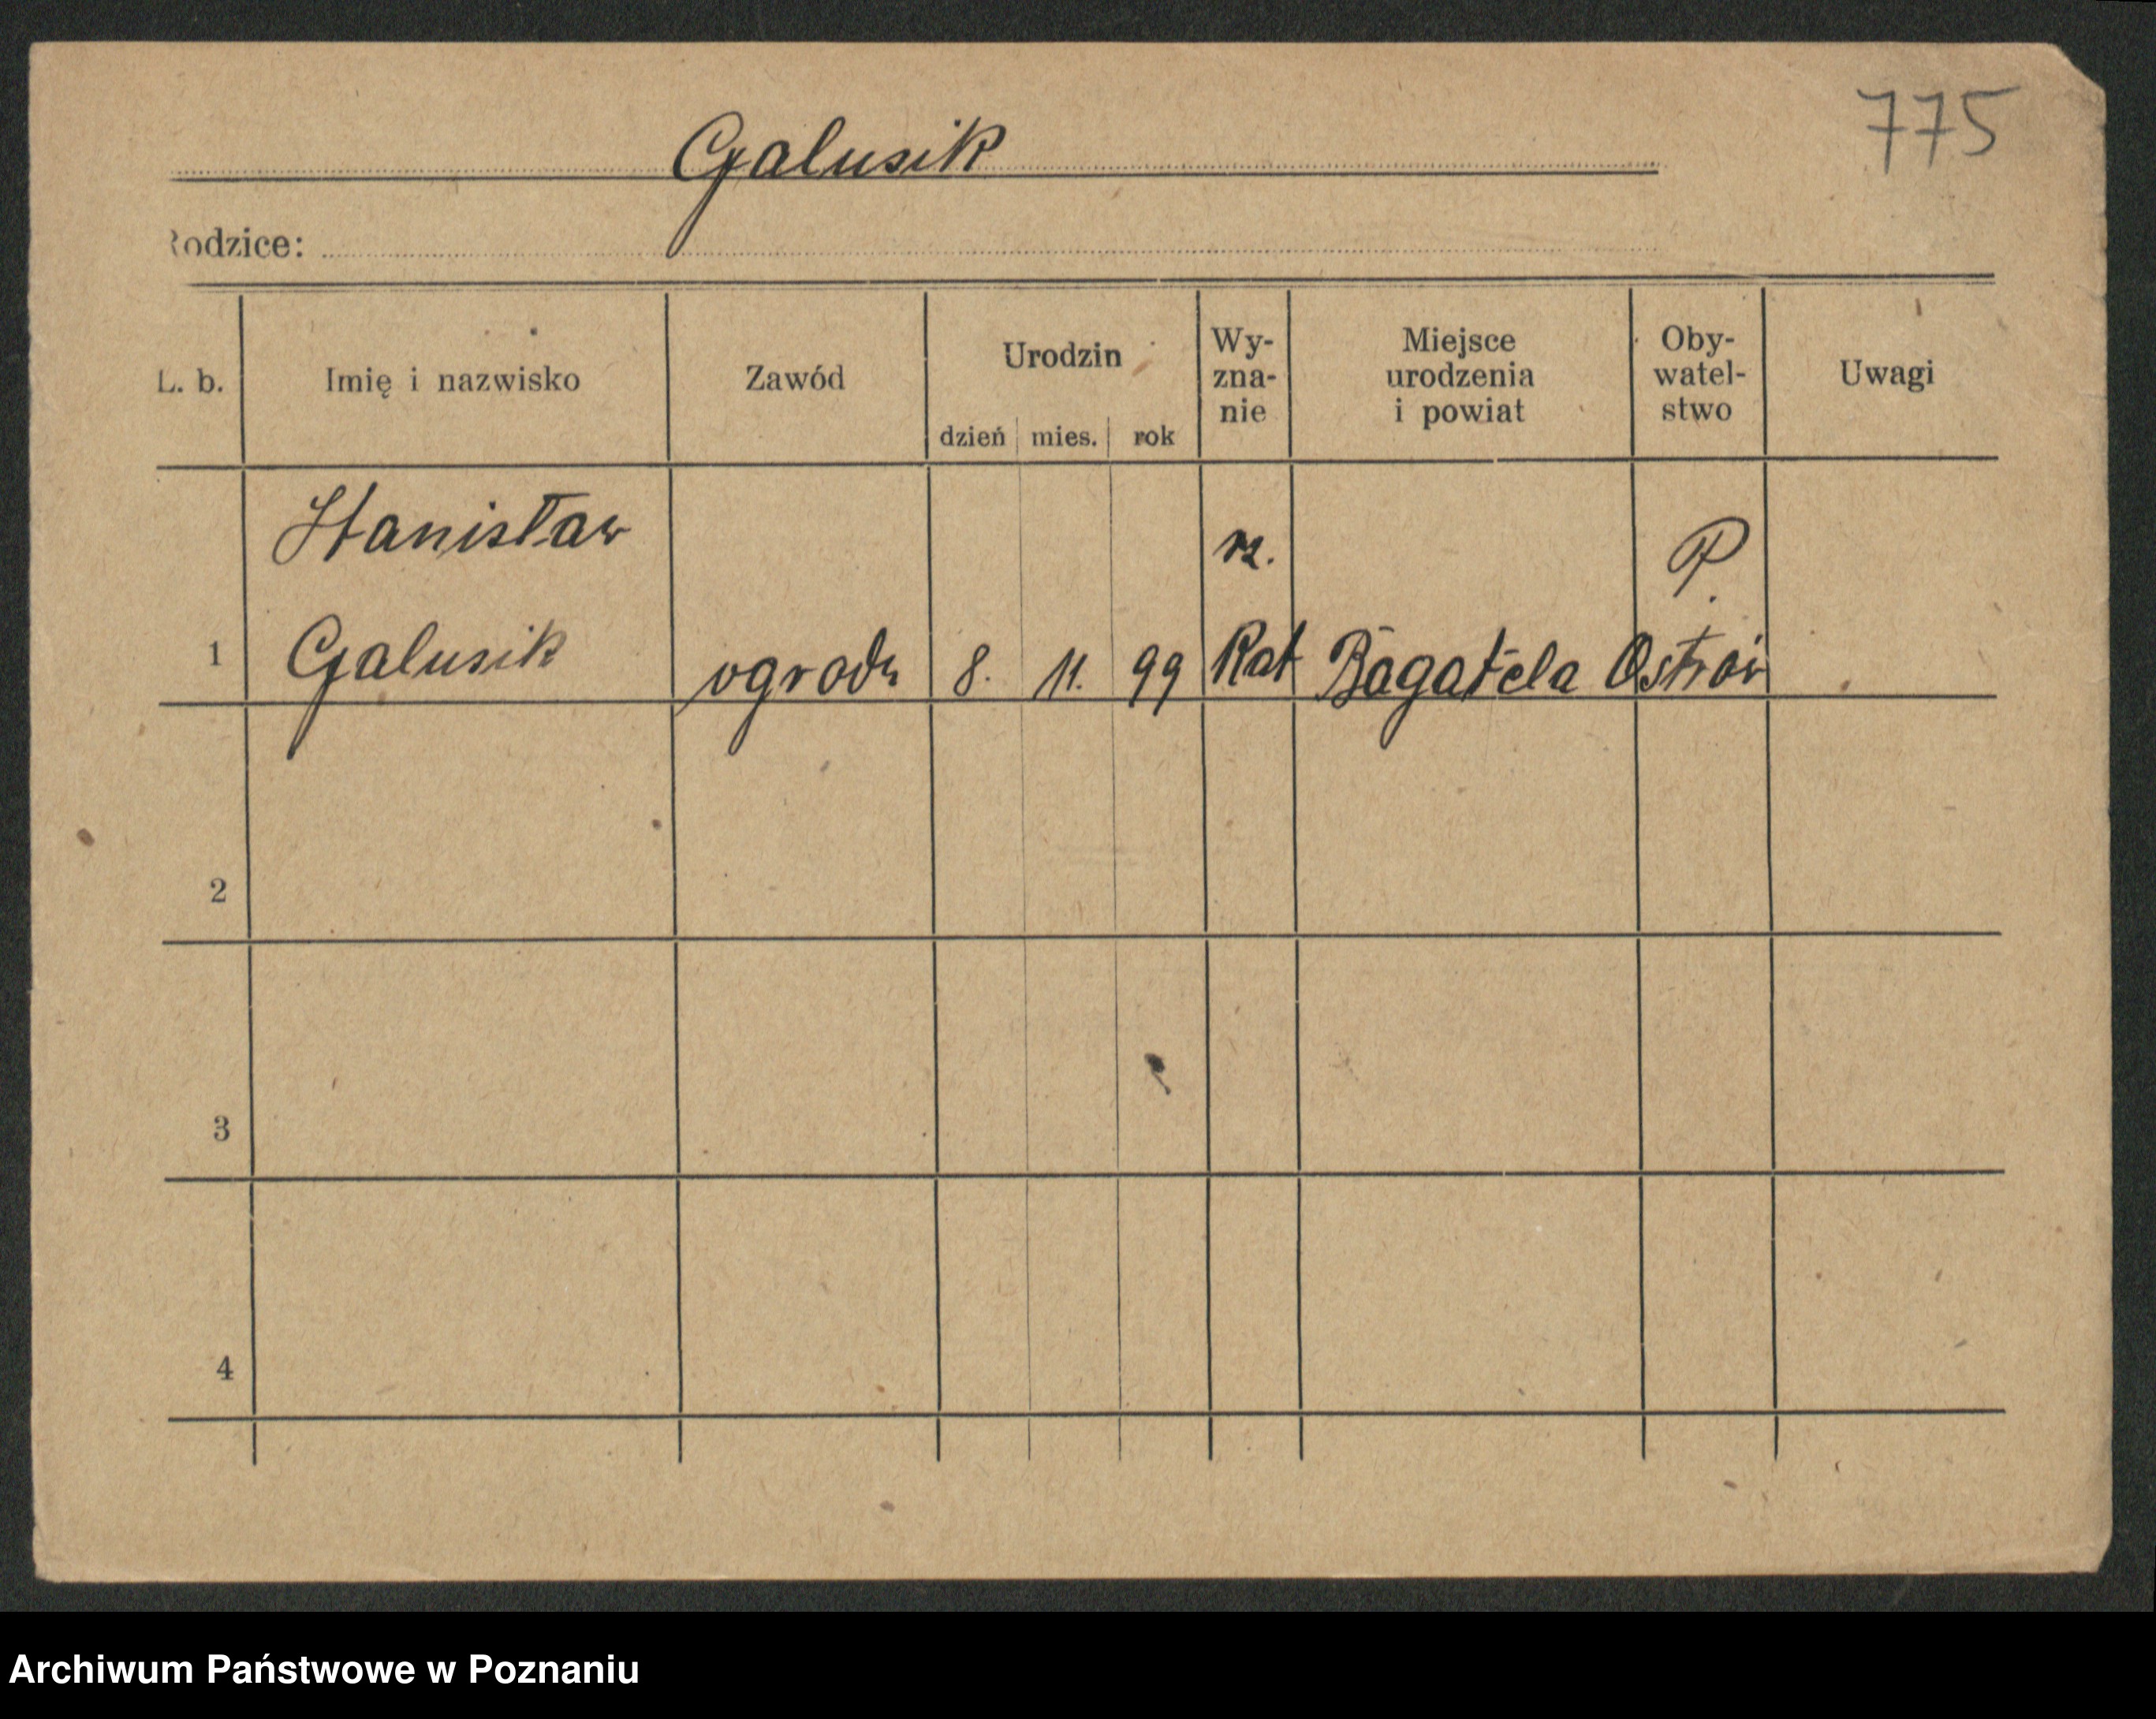 775
Galusik
Rodzice:
L. b.
Imię i nazwisko
Zawód
Urodzin
dzień mies. rok
Wy-
zna-
nie
Miejsce
urodzenia
i powiat
Oby-
watel-
stwo
Uwagi
Stanisław rz. P.
1 Galusik ogrodn 8. 11. 99 Kat Bagatela Ostrów
2
3
4
Archiwum Państwowe w Poznaniu